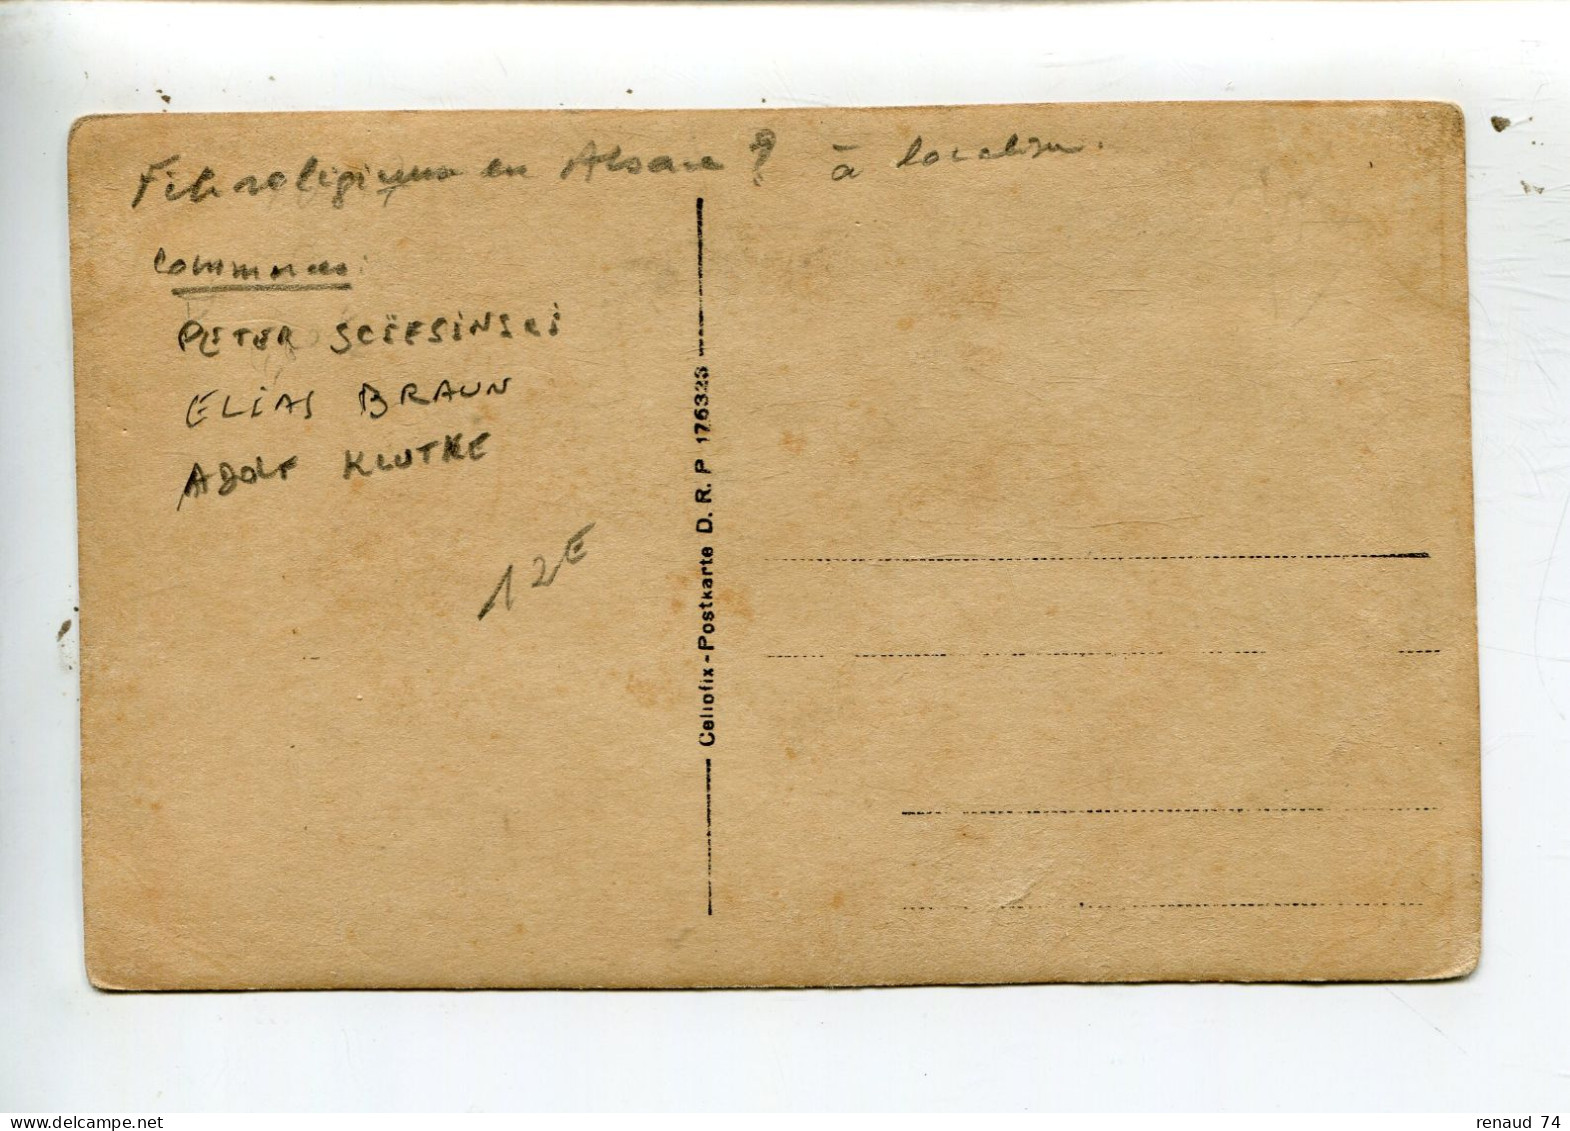 Fête religieuse en Alsace ? à localiser.
Commerces:
PETER SCIESINSKI
ELIAS BRAUN
ADOLF KLUTKE
12E
Cellofix-Postkarte D. R. P 176323
www.delcampe.net
renaud 74